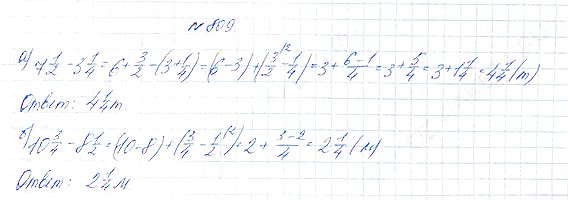 № 809.
а) 7 1/2 - 3 1/4 = 6 + 3/2 - (3 + 1/4) = (6 - 3) + (3/2 - 1/4) = 3 + (6-1)/4 = 3 + 5/4 = 3 + 1 1/4 = 4 1/4 (т)
Ответ: 4 1/4 т
б) 10 3/4 - 8 1/2 = (10 - 8) + (3/4 - 1/2) = 2 + (3-2)/4 = 2 1/4 (м)
Ответ: 2 1/4 м.